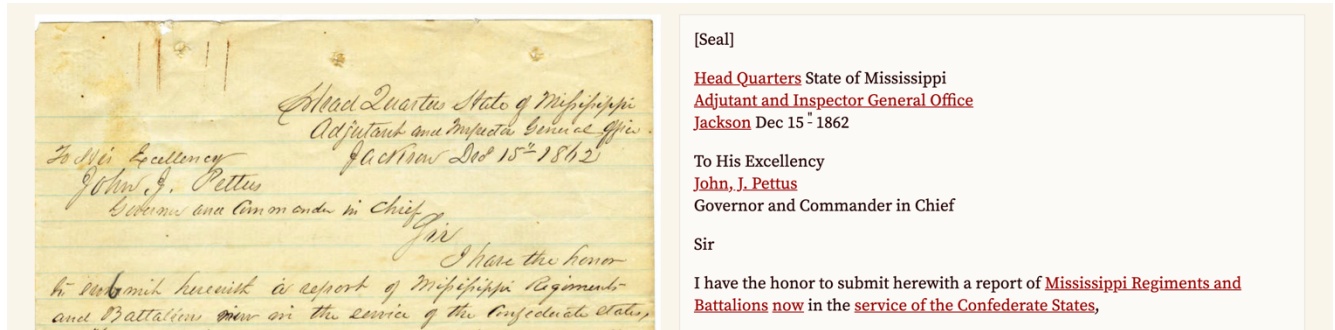 Head Quarters State of Mississippi
Adjutant and Inspector General Office.
Jackson Dec 15" 1862
To His Excellency
John J. Pettus
Governor and Commander in Chief
Sir
I have the honor
to submit herewith a report of Mississippi Regiments
and Battalions now in the service of the Confederate States,
[Seal]
Head Quarters State of Mississippi
Adjutant and Inspector General Office
Jackson Dec 15 " 1862
To His Excellency
John, J. Pettus
Governor and Commander in Chief
Sir
I have the honor to submit herewith a report of Mississippi Regiments and
Battalions now in the service of the Confederate States,